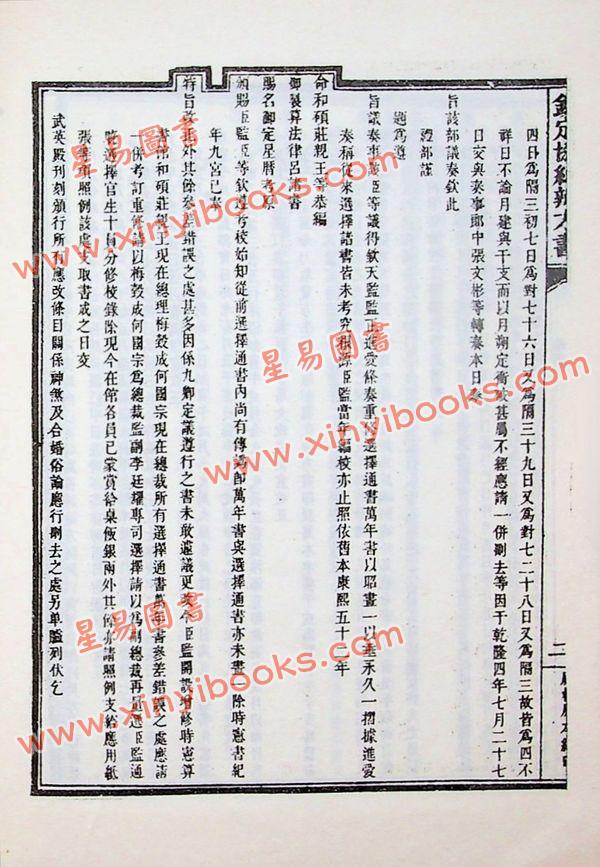 欽定協紀辨方書
四日為隔三初七日為對七十六日又為隔三十九日又為對七二十八日又為隔三故皆為四不
祥日不論月建與干支而以月朔定衝破甚屬不經應請一併刪去等因于乾隆四年七月二十七
日交與奏事郎中張文彬等轉奏本日奉
旨該部議奏欽此
禮部謹
題為遵
旨議奏事臣等議得欽天監監正進愛條奏重修選擇通書萬年書以昭畫一以垂永久一摺據進愛
奏稱從來選擇諸書皆未考究根源臣監當年編校亦止照依舊本康熙五十二年
命和碩莊親王等恭編
御製算法律呂諸書
賜名御定星曆考原
頒賜臣監臣等欽遵考校始知從前選擇通書內尚有傳譌即萬年書與選擇通書亦未畫一除時憲書紀
年九宮已奏
特旨改正外其餘參差錯誤之處甚多因係九卿定議遵行之書未敢遽議更改今臣監開設增修時憲算
書館和碩莊親王現在總理梅瑴成何國宗現在總裁所有選擇通書萬年書參差錯誤之處應請
一併考訂重修請以梅瑴成何國宗為總裁監副李廷耀專司選擇請以為副總裁再臣選臣監通
曉選擇官生十員分修校錄除現今在館各員已蒙賞給桌飯銀兩外其餘亦請照例支給應用紙
張等項照例該處支取書成之日交
武英殿刊刻頒行所有應改條目關係神煞及合婚俗論應行刪去之處另單臚列伏乞
二
星易圖書
www.xinyibooks.com
星易圖書
www.xinyibooks.com
星易圖書
www.xinyibooks.com